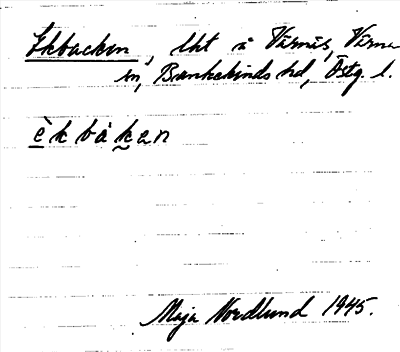 Ekbacken, lht å Värnäs, Värna
sn, Bankekinds hd, Östg. l.
èkbàkan
Maja Nordlund 1945.